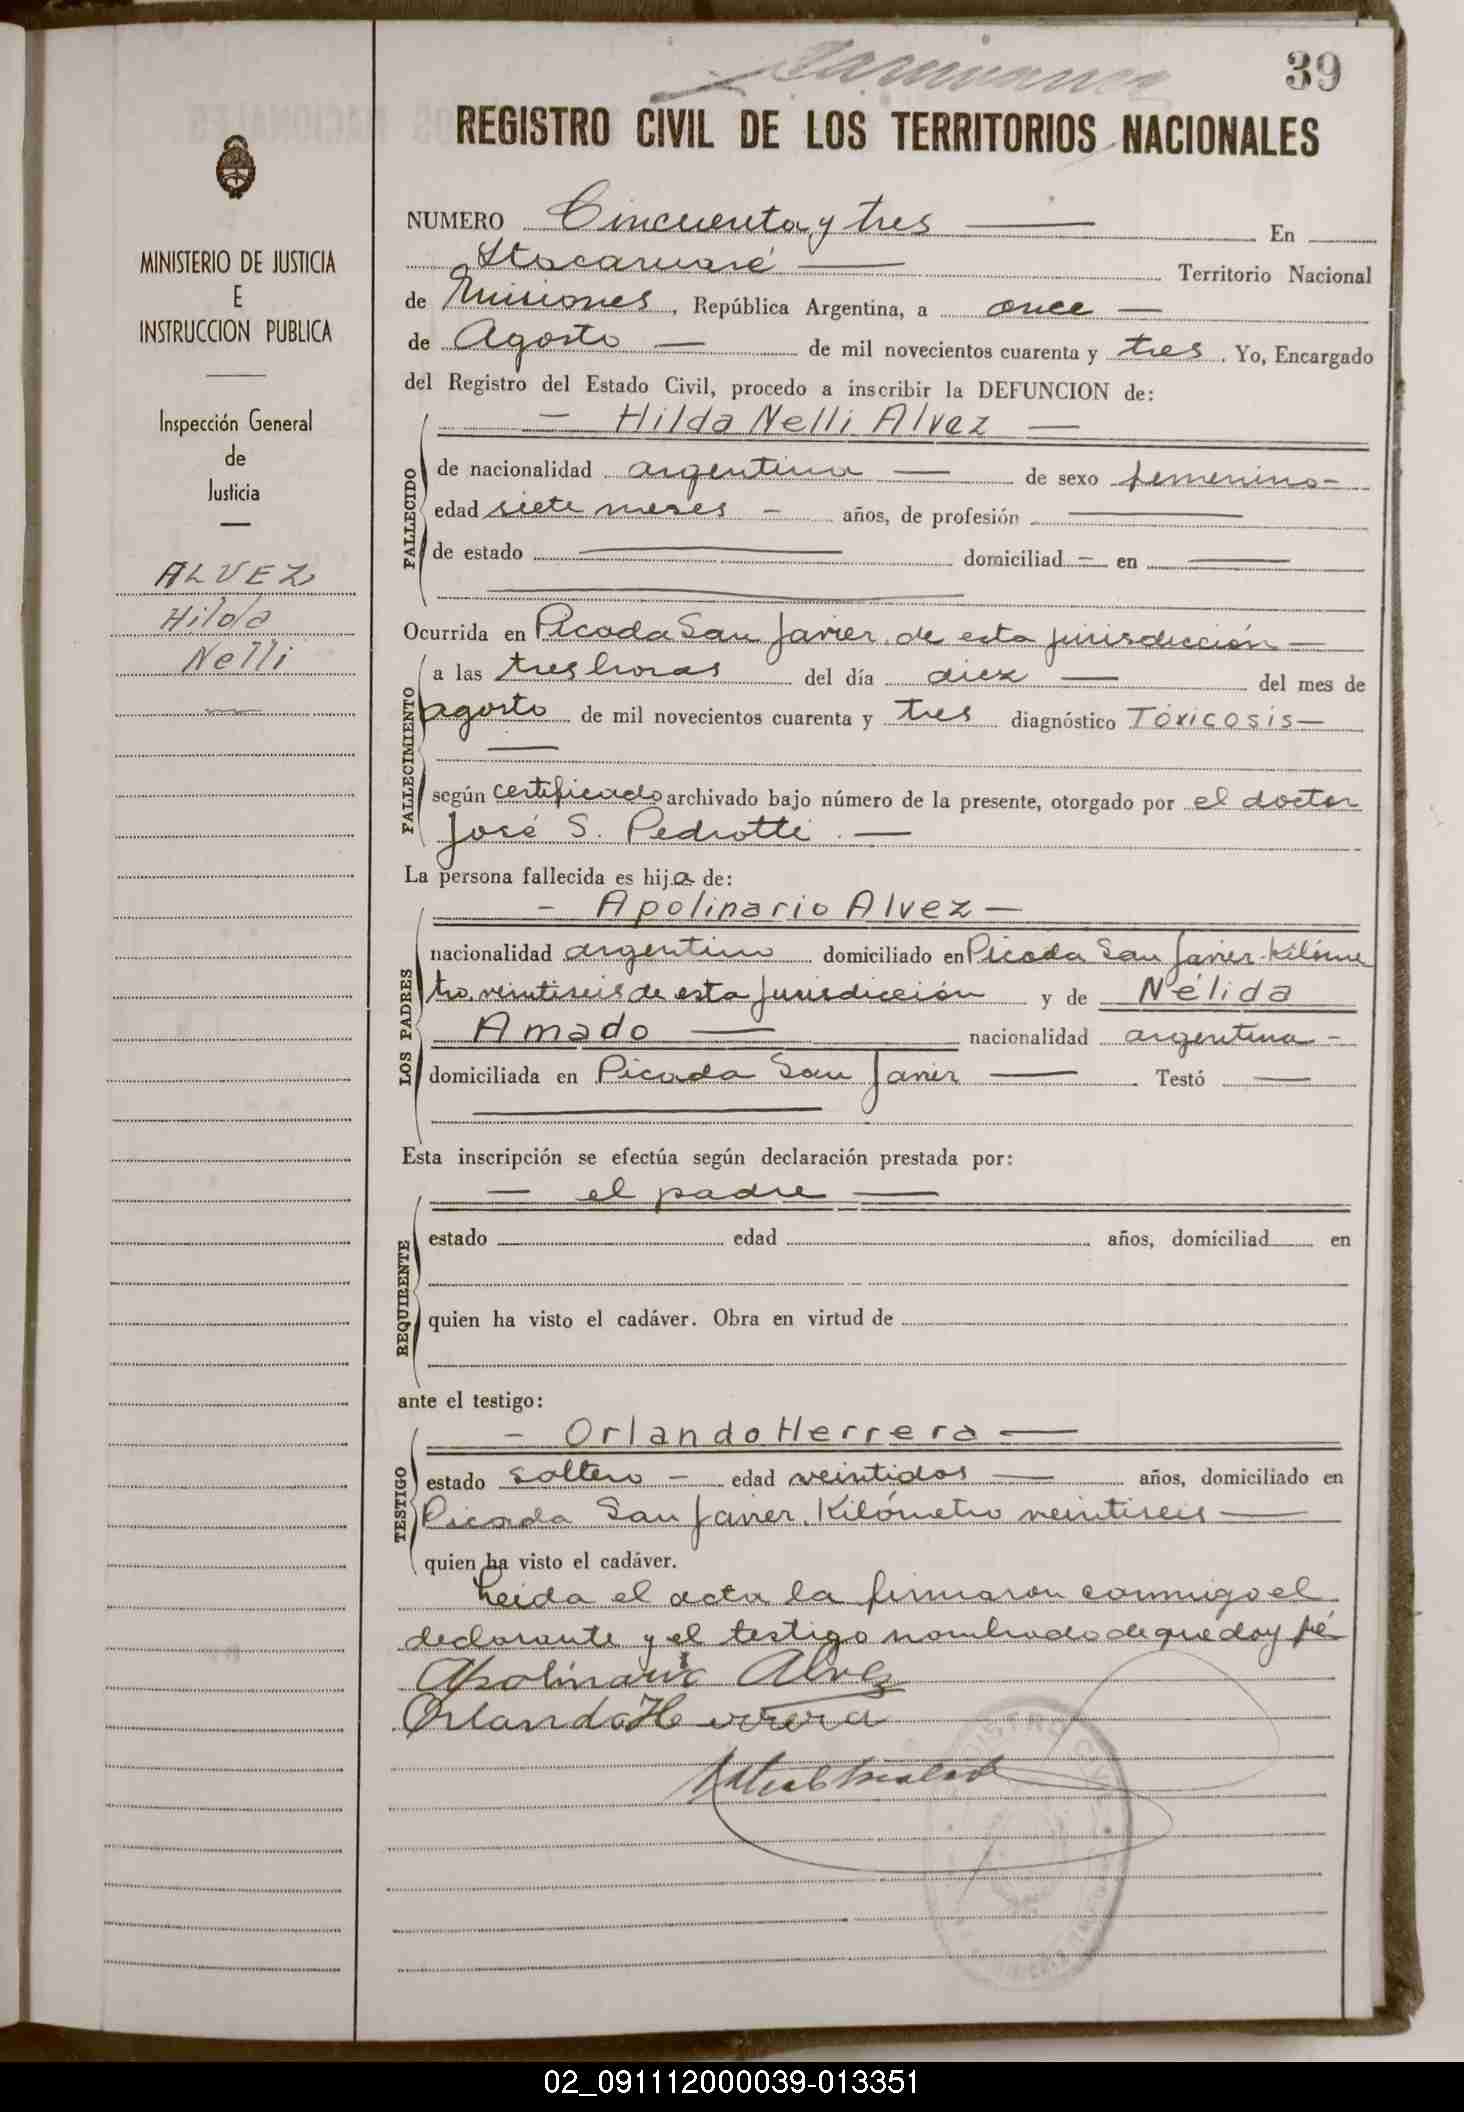 39
REGISTRO CIVIL DE LOS TERRITORIOS NACIONALES
MINISTERIO DE JUSTICIA
E
INSTRUCCION PUBLICA
Inspección General
de
Justicia
ALVEZ
Hilda
Nelli
NUMERO Cincuenta y tres — En
Itacaruaré — Territorio Nacional
de Misiones, República Argentina, a once —
de Agosto — de mil novecientos cuarenta y tres. Yo, Encargado
del Registro del Estado Civil, procedo a inscribir la DEFUNCION de:
— Hilda Nelli Alvez —
FALLECIDO
de nacionalidad argentina — de sexo femenino —
edad siete meses — años, de profesión —
de estado — domiciliad — en —
Ocurrida en Picada San Javier de esta jurisdicción —
FALLECIMIENTO
a las tres horas del día diez — del mes de
agosto de mil novecientos cuarenta y tres diagnóstico Tóxicosis —
—
según certificado archivado bajo número de la presente, otorgado por el doctor
José S. Pedrotti. —
La persona fallecida es hija de:
— Apolinario Alvez —
LOS PADRES
nacionalidad argentino domiciliado en Picada San Javier-Kilóme
tro veintiseis de esta jurisdicción y de Nélida
Amado — nacionalidad argentina —
domiciliada en Picada San Javier — Testó —
Esta inscripción se efectúa según declaración prestada por:
— el padre —
REQUIRENTE
estado edad años, domiciliad en
quien ha visto el cadáver. Obra en virtud de
ante el testigo:
— Orlando Herrera —
TESTIGO
estado soltero — edad veintidos — años, domiciliado en
Picada San Javier. Kilómetro veintiseis —
quien ha visto el cadáver.
Leida el acta la firmaron conmigo el
declarante y el testigo nombrado de que doy fé
Apolinario Alvez
Orlando Herrera
02_091112000039-013351